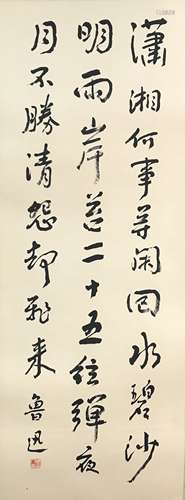 瀟湘何事等閑回水碧沙
明兩岸苔二十五絃彈夜
月不勝清怨却飛来 魯迅